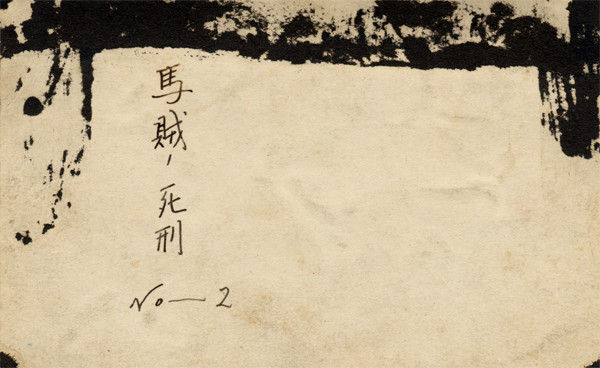 馬賊ノ死刑
No—2